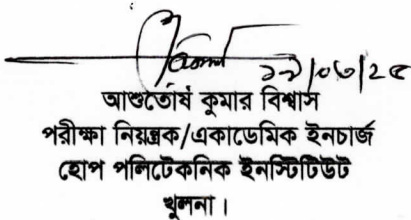 ২৯/০৬/২৫
আশুতোষ কুমার বিশ্বাস
পরীক্ষা নিয়ন্ত্রক/একাডেমিক ইনচার্জ
হোপ পলিটেকনিক ইনস্টিটিউট
খুলনা।